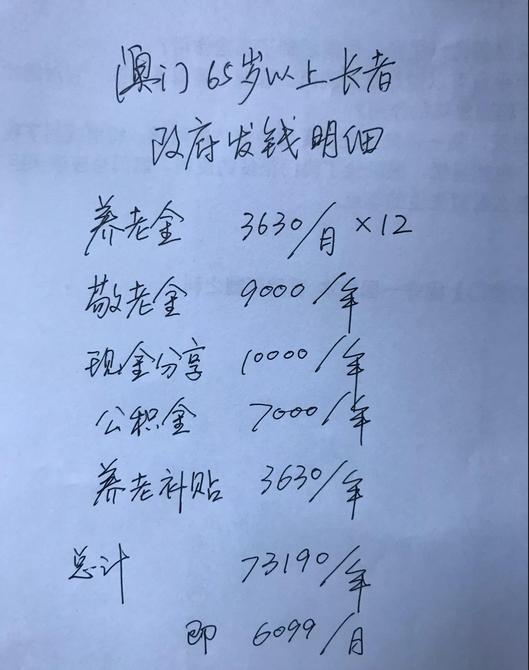 澳门65岁以上长者
政府发钱明细
养老金 3630/月×12
敬老金 9000/年
现金分享 10000/年
公积金 7000/年
养老补贴 3630/年
总计 73190/年
即 6099/月